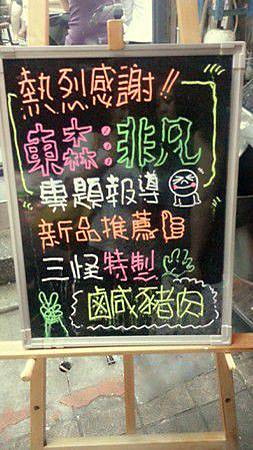 熱烈感謝!!
東森:非凡
專題報導
新品推薦
三怪特製
鹹豬肉